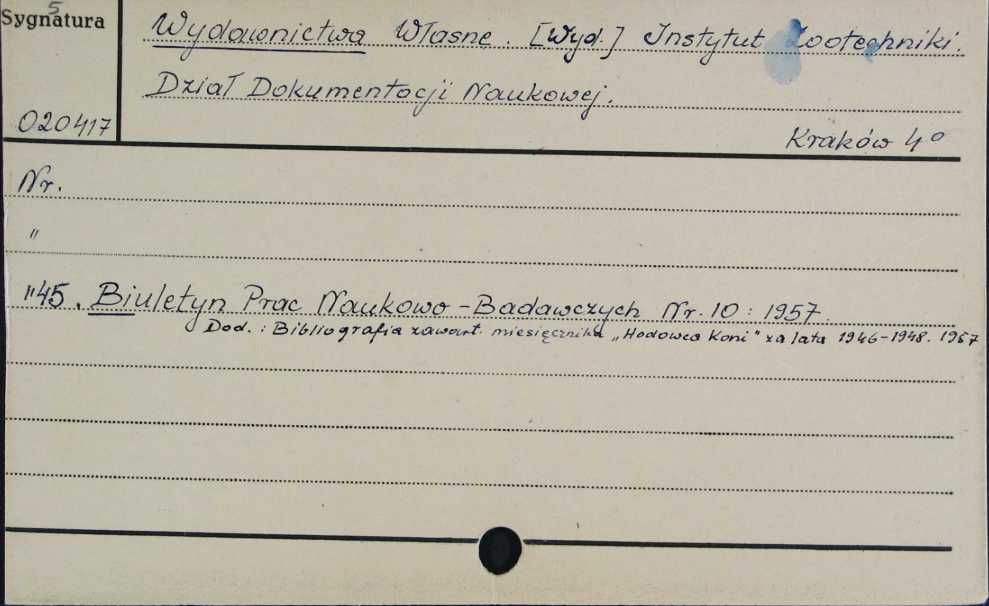 5
Sygnatura
Wydawnictwa Własne. [Wyd.] Instytut Zootechniki.
Dział Dokumentacji Naukowej.
020417
Kraków 4°
Nr.
"
"45. Biuletyn Prac Naukowo-Badawczych Nr. 10 : 1957.
Dod. : Bibliografia zawart. miesięcznika „Hodowca Koni" za lata 1946-1948. 1957